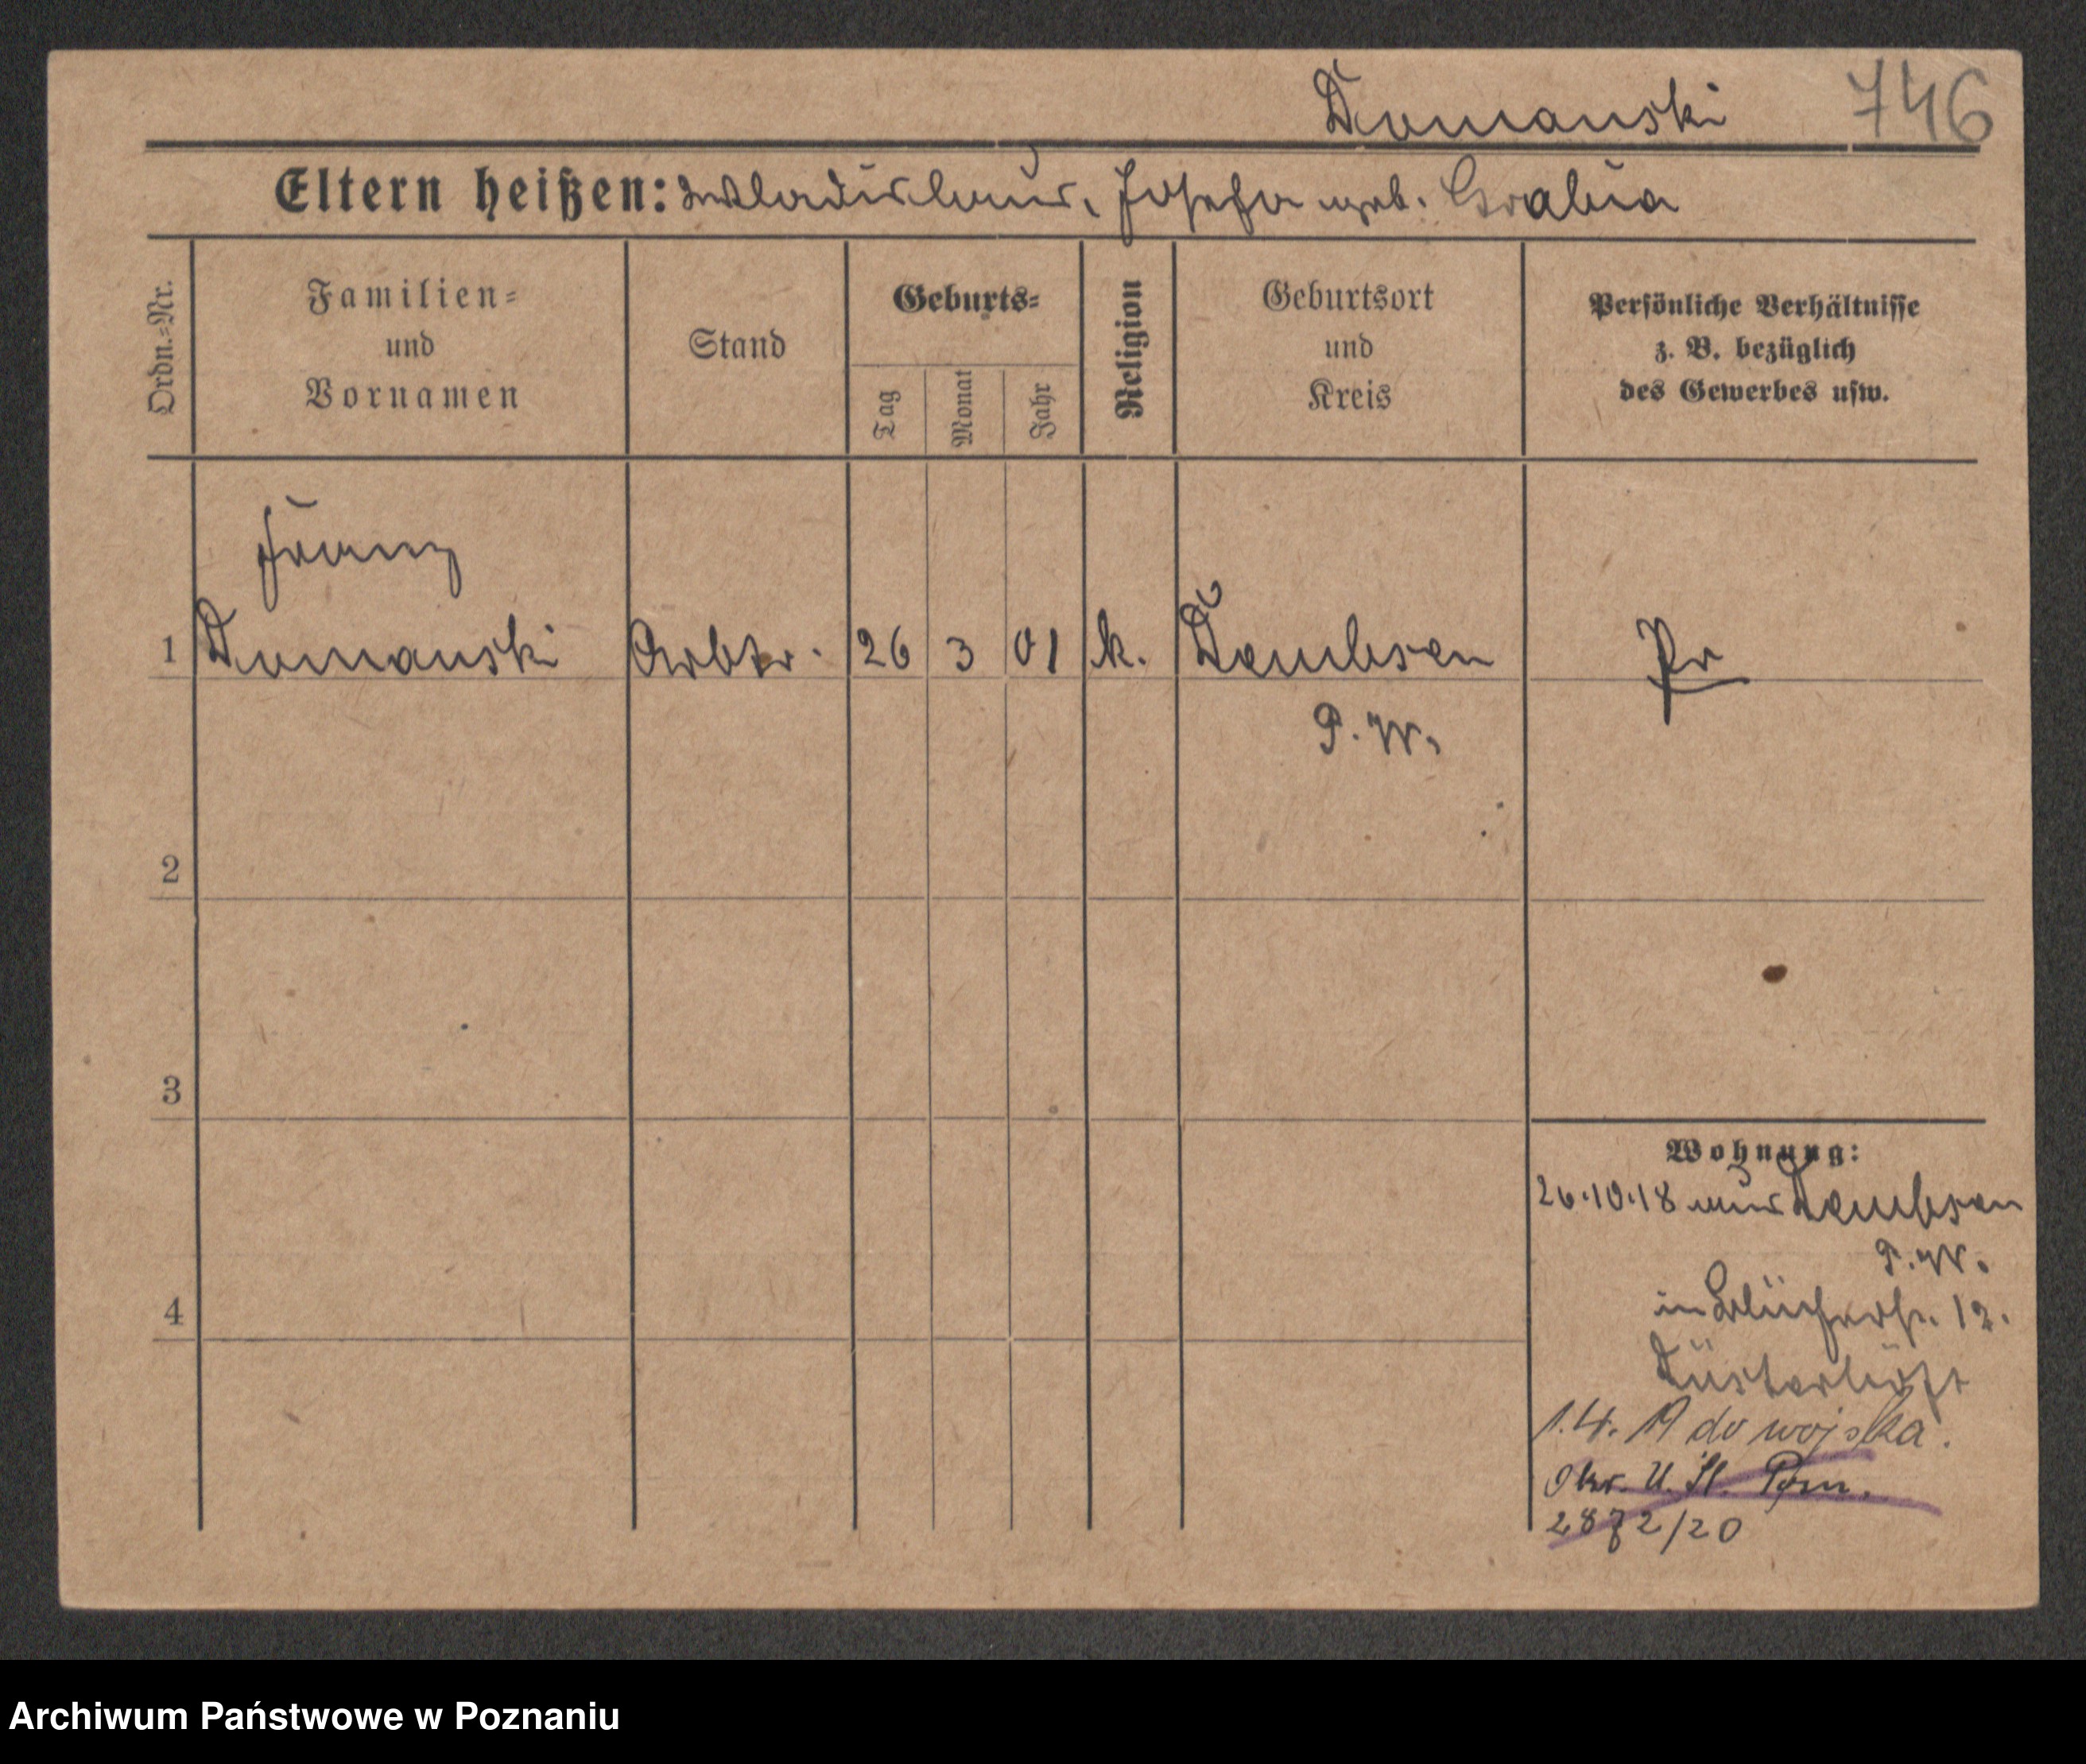 Domanski 746
Eltern heißen: Wladislaus, Josefa geb. Grabia
Ordn.=Nr.
Familien=
und
Vornamen
Stand
Geburts=
Tag
Monat
Jahr
Religion
Geburtsort
und
Kreis
Persönliche Verhältnisse
z. B. bezüglich
des Gewerbes usw.
Franz
1 Domanski Arbtr. 26 3 01 k. Dembsen Pr
P. W.
2
3
4
Wohnung:
26.10.18 aus Dembsen
P. W.
in Blücherstr. 12.
Düsterhöft
1.4.19 do wojska.
Okr. U. St. Pozn.
2872/20
Archiwum Państwowe w Poznaniu